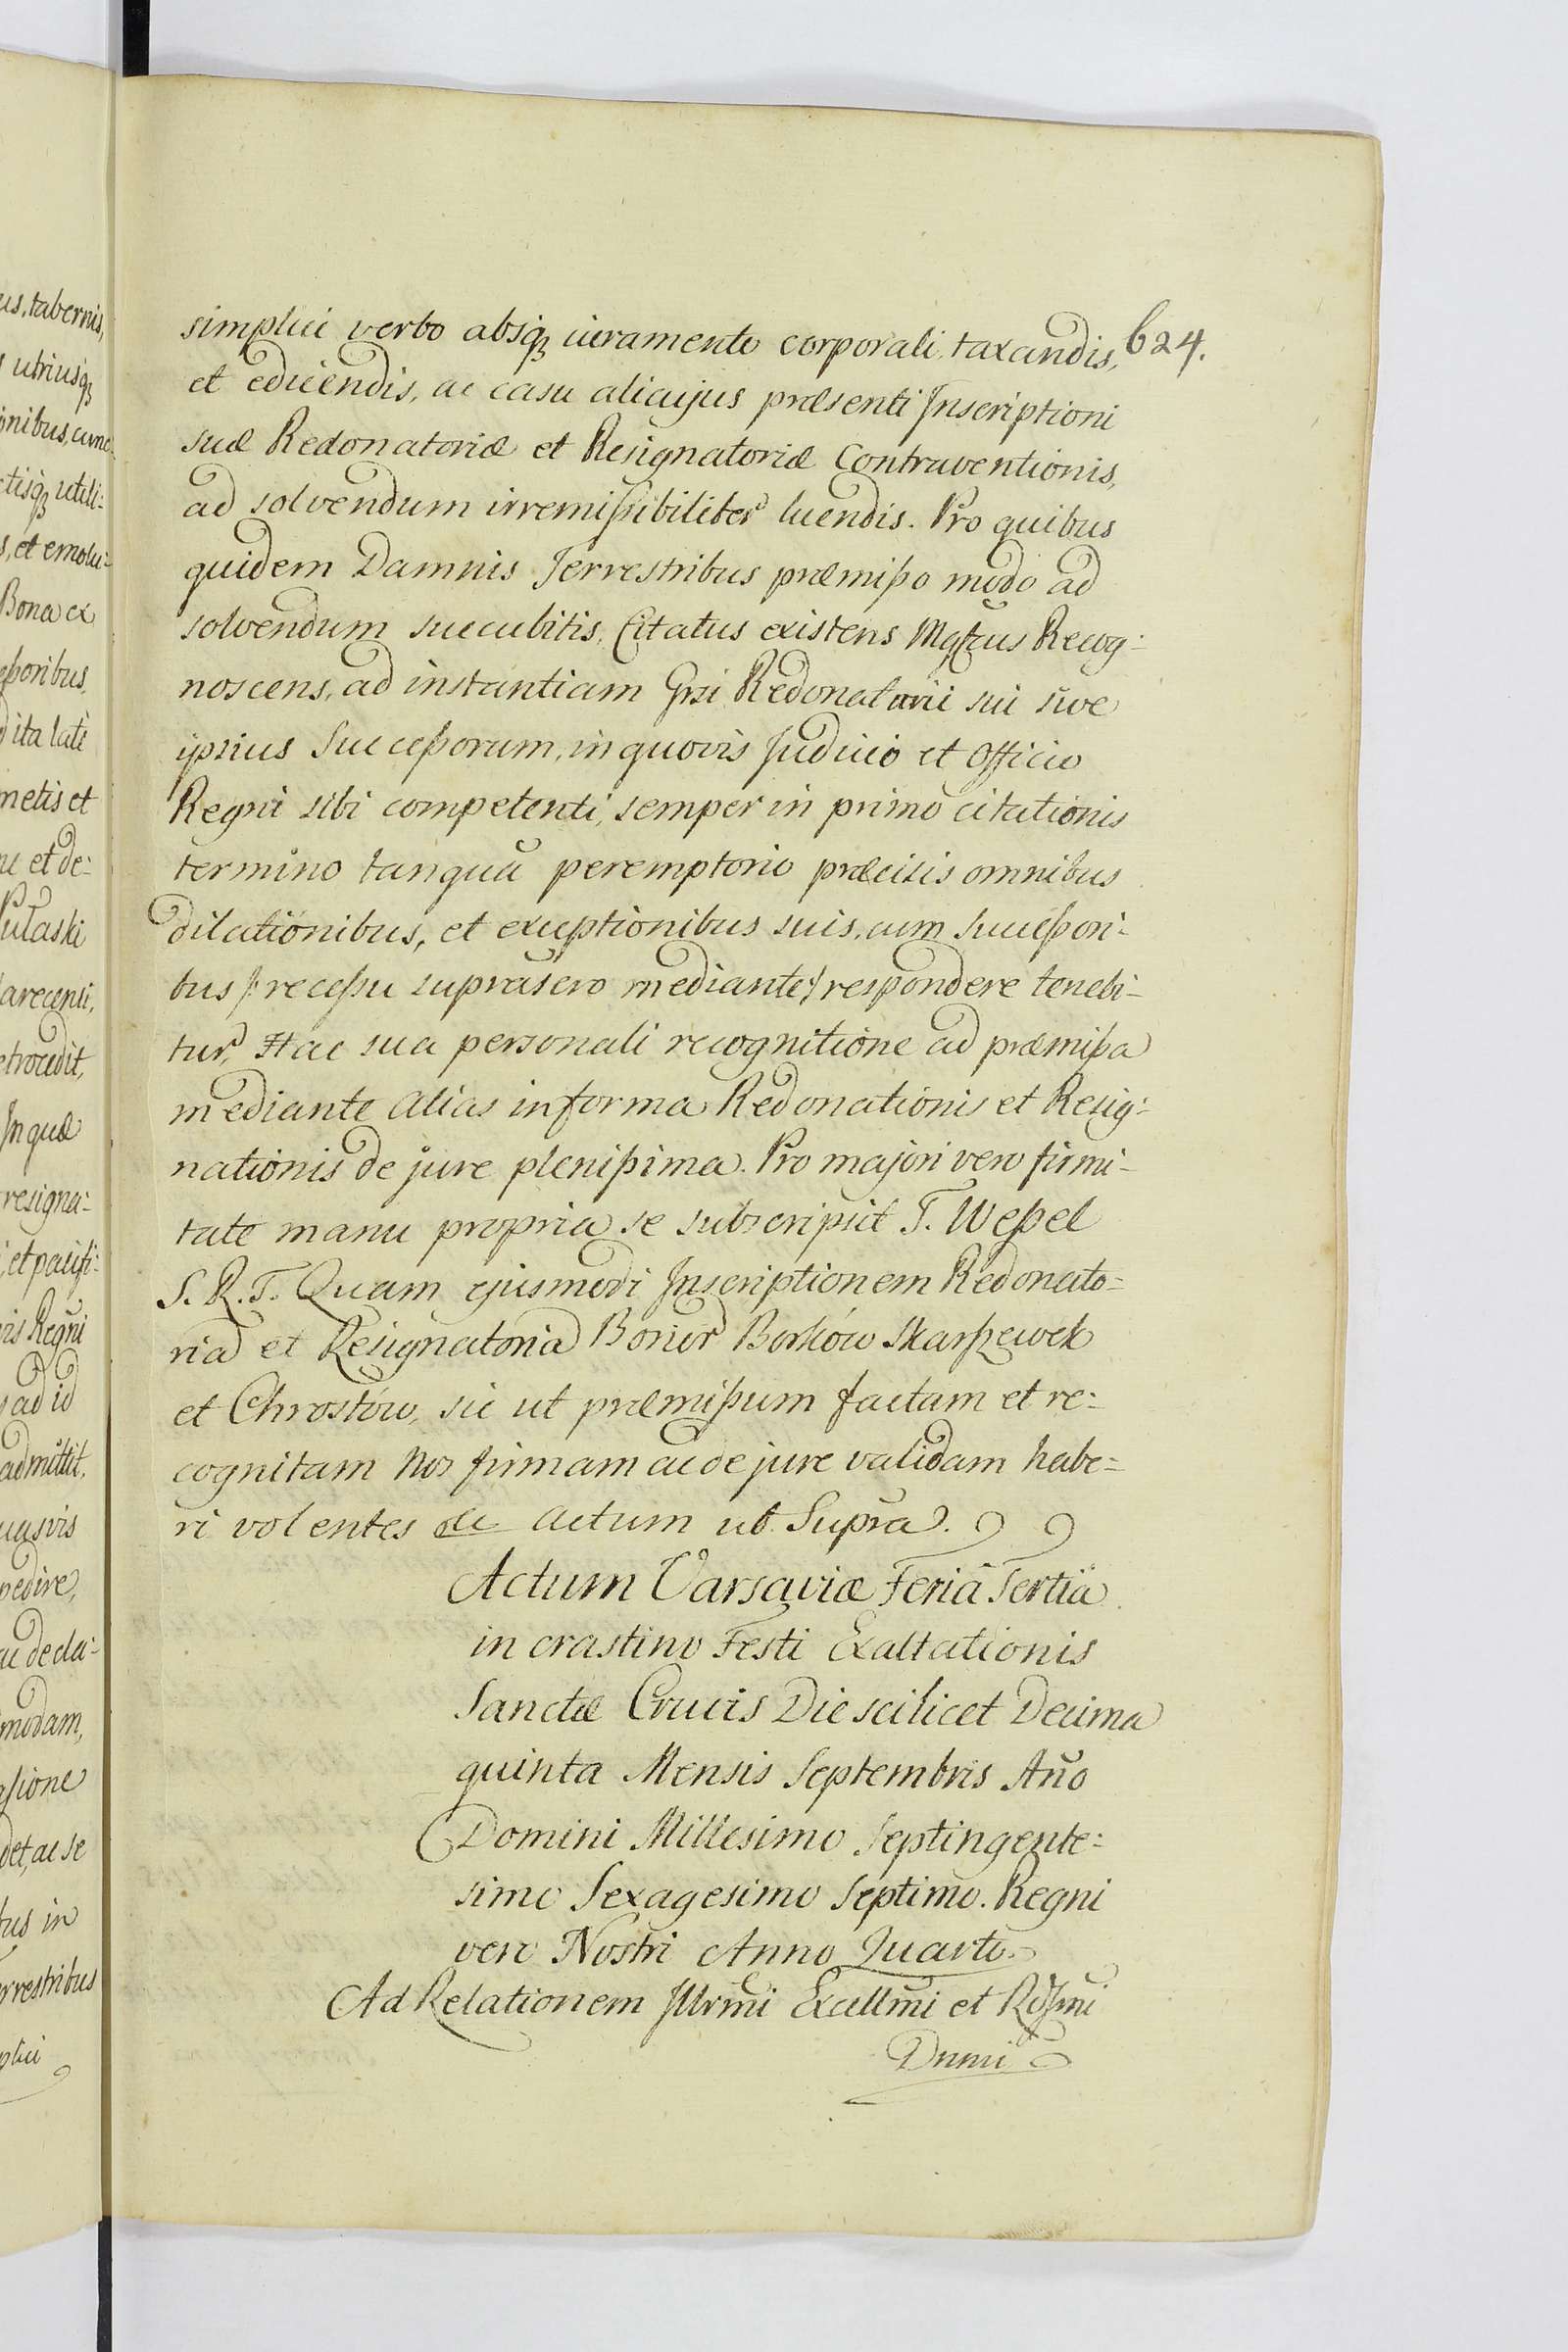 us, tabernis,
utriusqz
onibus, cunc-
ctisqz utili:
s, et emolu:
Bona ex
eßoribus,
ita latè
metis et
et de:
Pulaski
arecensi,
etrocedit,
In quæ
resigna:
et pacifi:
vis Regñi
ad id
admittit,
uasvis
pedire,
ac decla:
modam,
asione
det, ac se
tus in
rrestribus
plici
624.
simplici verbo absqz iuramento corporali, taxandis,
et edicendis, ac casu alicujus præsenti Inscriptioni
suæ Redonatoriæ et Resignatoriæ Contraventionis,
ad solvendum irremißibiliter luendis. Pro quibus
quidem Damnis Terrestribus præmißo modo ad
solvendum succubitis, Citatus existens Mgfcus Recog:
noscens, ad instantiam Gsi Redonatarii sui sive
ipsius Succeßorum, in quovis Judicio et Officio
Regni sibi competenti, semper in primo citationis
termino tanquã peremptorio præcisis omnibus
dilationibus, et exceptionibus suis, cum Succeßori-
bus /: receßu suprãsero mediante :/ respondere tenebi-
tur, Hac sua personali recognitione ad præmißa
mediante alias in forma Redonationis et Resig:
nationis de jure plenißima. Pro majori vero firmi-
tate manu propria se subscripsit T. Weßel
S. R. T. Quam ejusmodi Inscriptionem Redonato-
riã et Resignatoriã Bonor Borków Skarszewek
et Chrostów, sic ut præmißum factam et re:
cognitam Nos firmam ac de jure validam habe=
ri volentes etc Actum ut Supra.
Actum Varsaviæ Feriâ Tertiâ
in crastino Festi Exaltationis
Sanctæ Crucis Die scilicet Decima
quinta Mensis Septembris Año
Domini Millesimo Septingente:
simo Sexagesimo Septimo. Regni
vero Nostri Anno Quarto.
Ad Relationem Illrmi Excellmi et Rdssmi
Dnni